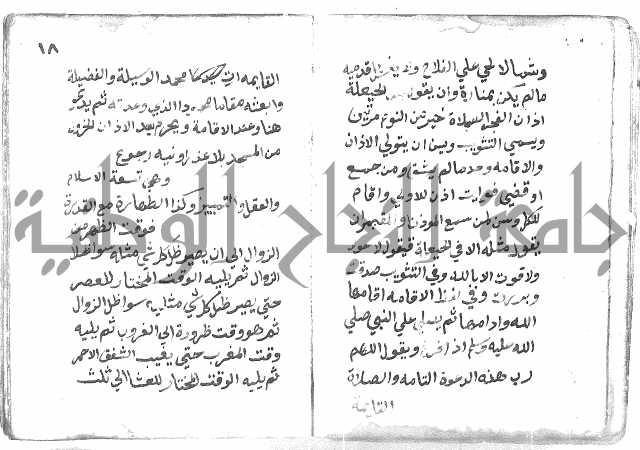 وشمالا لحي علي الفلاح ولا يغير قدميه
مالم يكن بمنارة وان يقول بعد الحيعلة
اذان الفجر الصلاة خير من النوم مرتين
ويسمي التثويب ويسن ان يتولي الاذان
والاقامه واحد مالم يشق ومن جمع
او قضي فوايت اذن للاولي واقام
للكل وسن لمن سمع الموذن والمقيم ان
يقول مثله الا في الحيعلة فيقول لا حول
ولا قوت الا بالله وفي التثويب صدقت
وبررت وفي لفظ الاقامه اقامها
الله وادامها ثم يصلي علي النبي صلي
الله عليه وسلم اذا فرغ ويقول اللهم
رب هذه الدعوة التامه والصلاة
القايمة
١٨
القايمه ات محمد الوسيلة والفضيلة
وابعثه مقاما محمودا الذي وعدته ثم يدعو
هنا وعند الاقامة ويحرم بعد الاذان الخروج
من المسجد بلا عذر او نيه رجوع
وهي تسعة الاسلام
والعقل والتمييز وكذا الطهارة مع القدرة
فوقت الظهر من
الزوال الي ان يصير ظل كل شي مثله سوا ظل
الزوال ثم يليه الوقت المختار للعصر
حتي يصير ظل كل شي مثليه سوا ظل الزوال
ثم هو وقت ضرورة الي الغروب ثم يليه
وقت المغرب حتي يغيب الشفق الاحمر
ثم يليه الوقت المختار للعشا الي ثلث
جامعة النجاح الوطنية